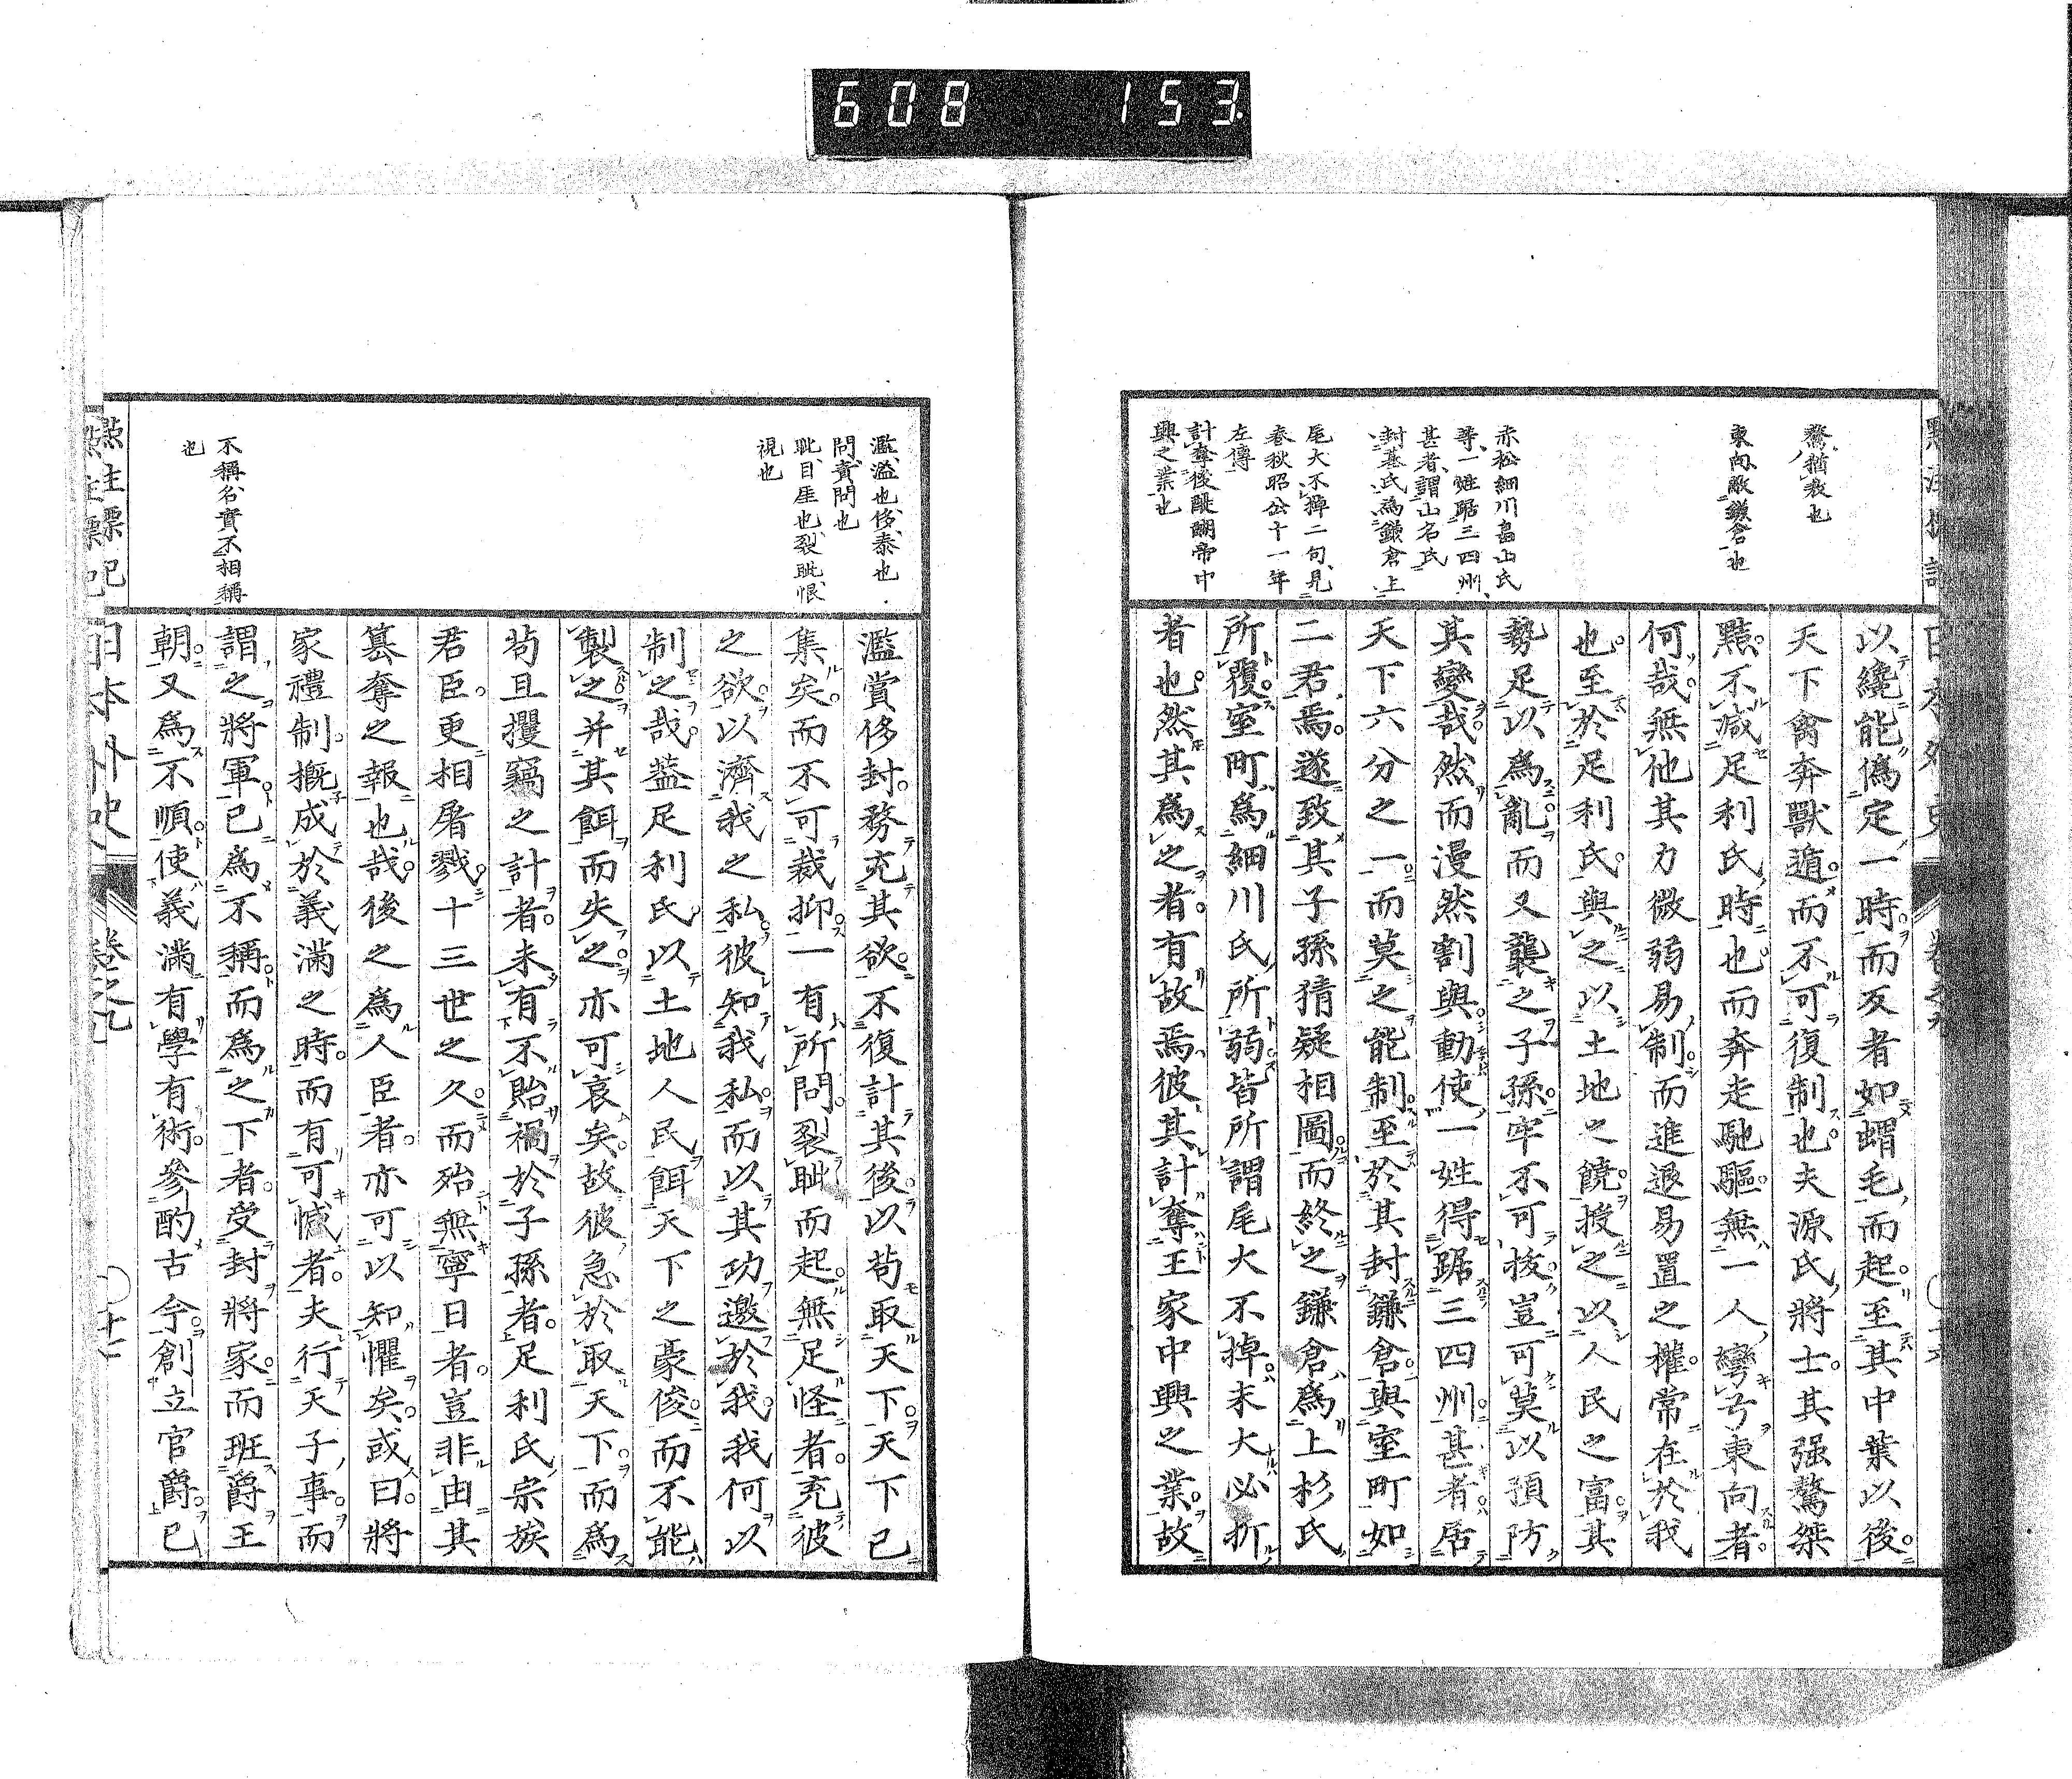 608 153
鶩、猶敖也
東向、敵鎌倉也
赤松細川畠山氏
等、一姓踞三四州、
甚者、謂山名氏
封基氏為鎌倉上
尾大不掉二句、見
春秋昭公十一年
左傳
計奪後醍醐帝中
興之業也
以纔能僞定一時而反者如蝟毛而起至其中葉以後
天下禽奔獸遁而不可復制也夫源氏將士其强驁桀
黠不減足利氏時也而奔走馳驅無一人彎弓東向者
何哉無他其力微弱易制而進退易置之權常在於我
也至於足利氏與之以土地之饒授之以人民之富其
勢足以爲亂而又襲之子孫牢不可拔豈可莫以預防
其變哉然而漫然割與動使一姓得踞三四州甚者居
天下六分之一而莫之能制至於其封鎌倉與室町如
二君焉遂致其子孫猜疑相圖而終之鎌倉爲上杉氏
所覆室町爲細川氏所弱皆所謂尾大不掉末大必折
者也然其爲之者有故焉彼其計奪王家中興之業故
濫、溢也、侈、泰也
問、責問也
眦、目厓也、裂眦、恨
視也
不稱、名實不相稱
也
濫賞侈封務充其欲不復計其後以苟取天下天下已
集矣而不可裁抑一有所問裂眦而起無足怪者充彼
之欲以濟我之私彼知我私而以其功邀於我我何以
制之哉蓋足利氏以土地人民餌天下之豪俊而不能
製之并其餌而失之亦可哀矣故彼急於取天下而爲
苟且攫竊之計者未有不貽禍於子孫者足利氏宗族
君臣更相屠戮十三世之久而殆無寧日者豈非由其
簒奪之報也哉後之爲人臣者亦可以知懼矣或曰將
家禮制概成於義滿之時而有可憾者夫行天子事而
謂之將軍已爲不稱而爲之下者受封將家而班爵王
朝又爲不順使義滿有學有術參酌古今創立官爵已
點註標記
日本外史
卷之九